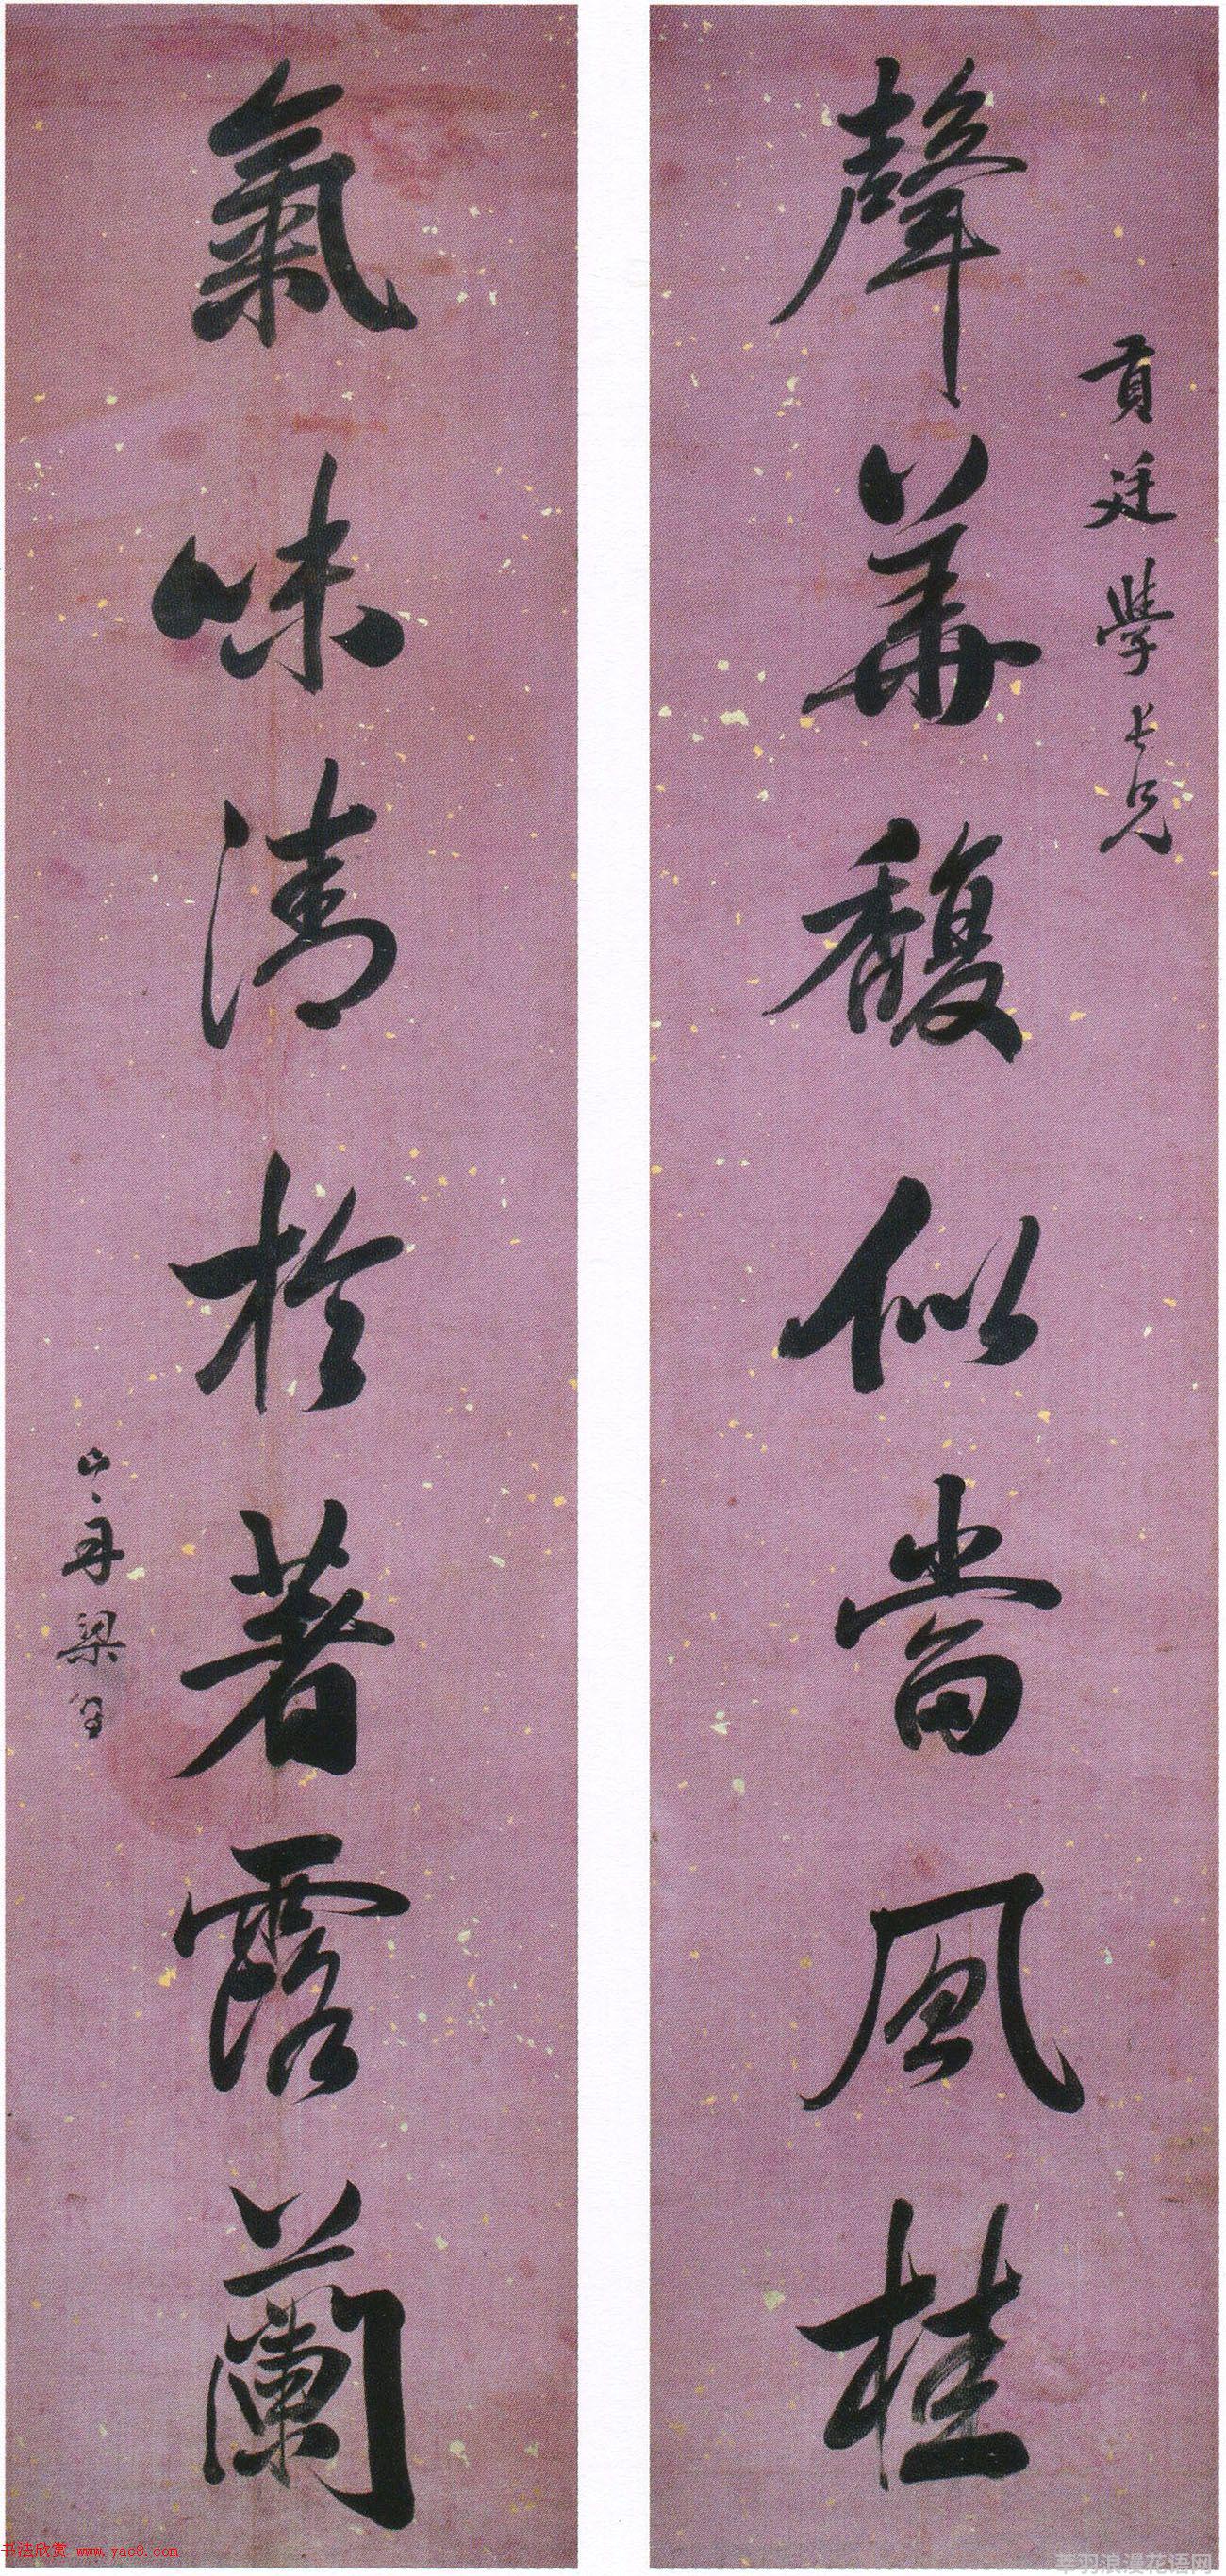 貢廷學長兄
聲華馥似當風桂
氣味清於著露蘭
山舟梁同書
书法欣赏 www.yac8.com
芊羽浪漫花语网